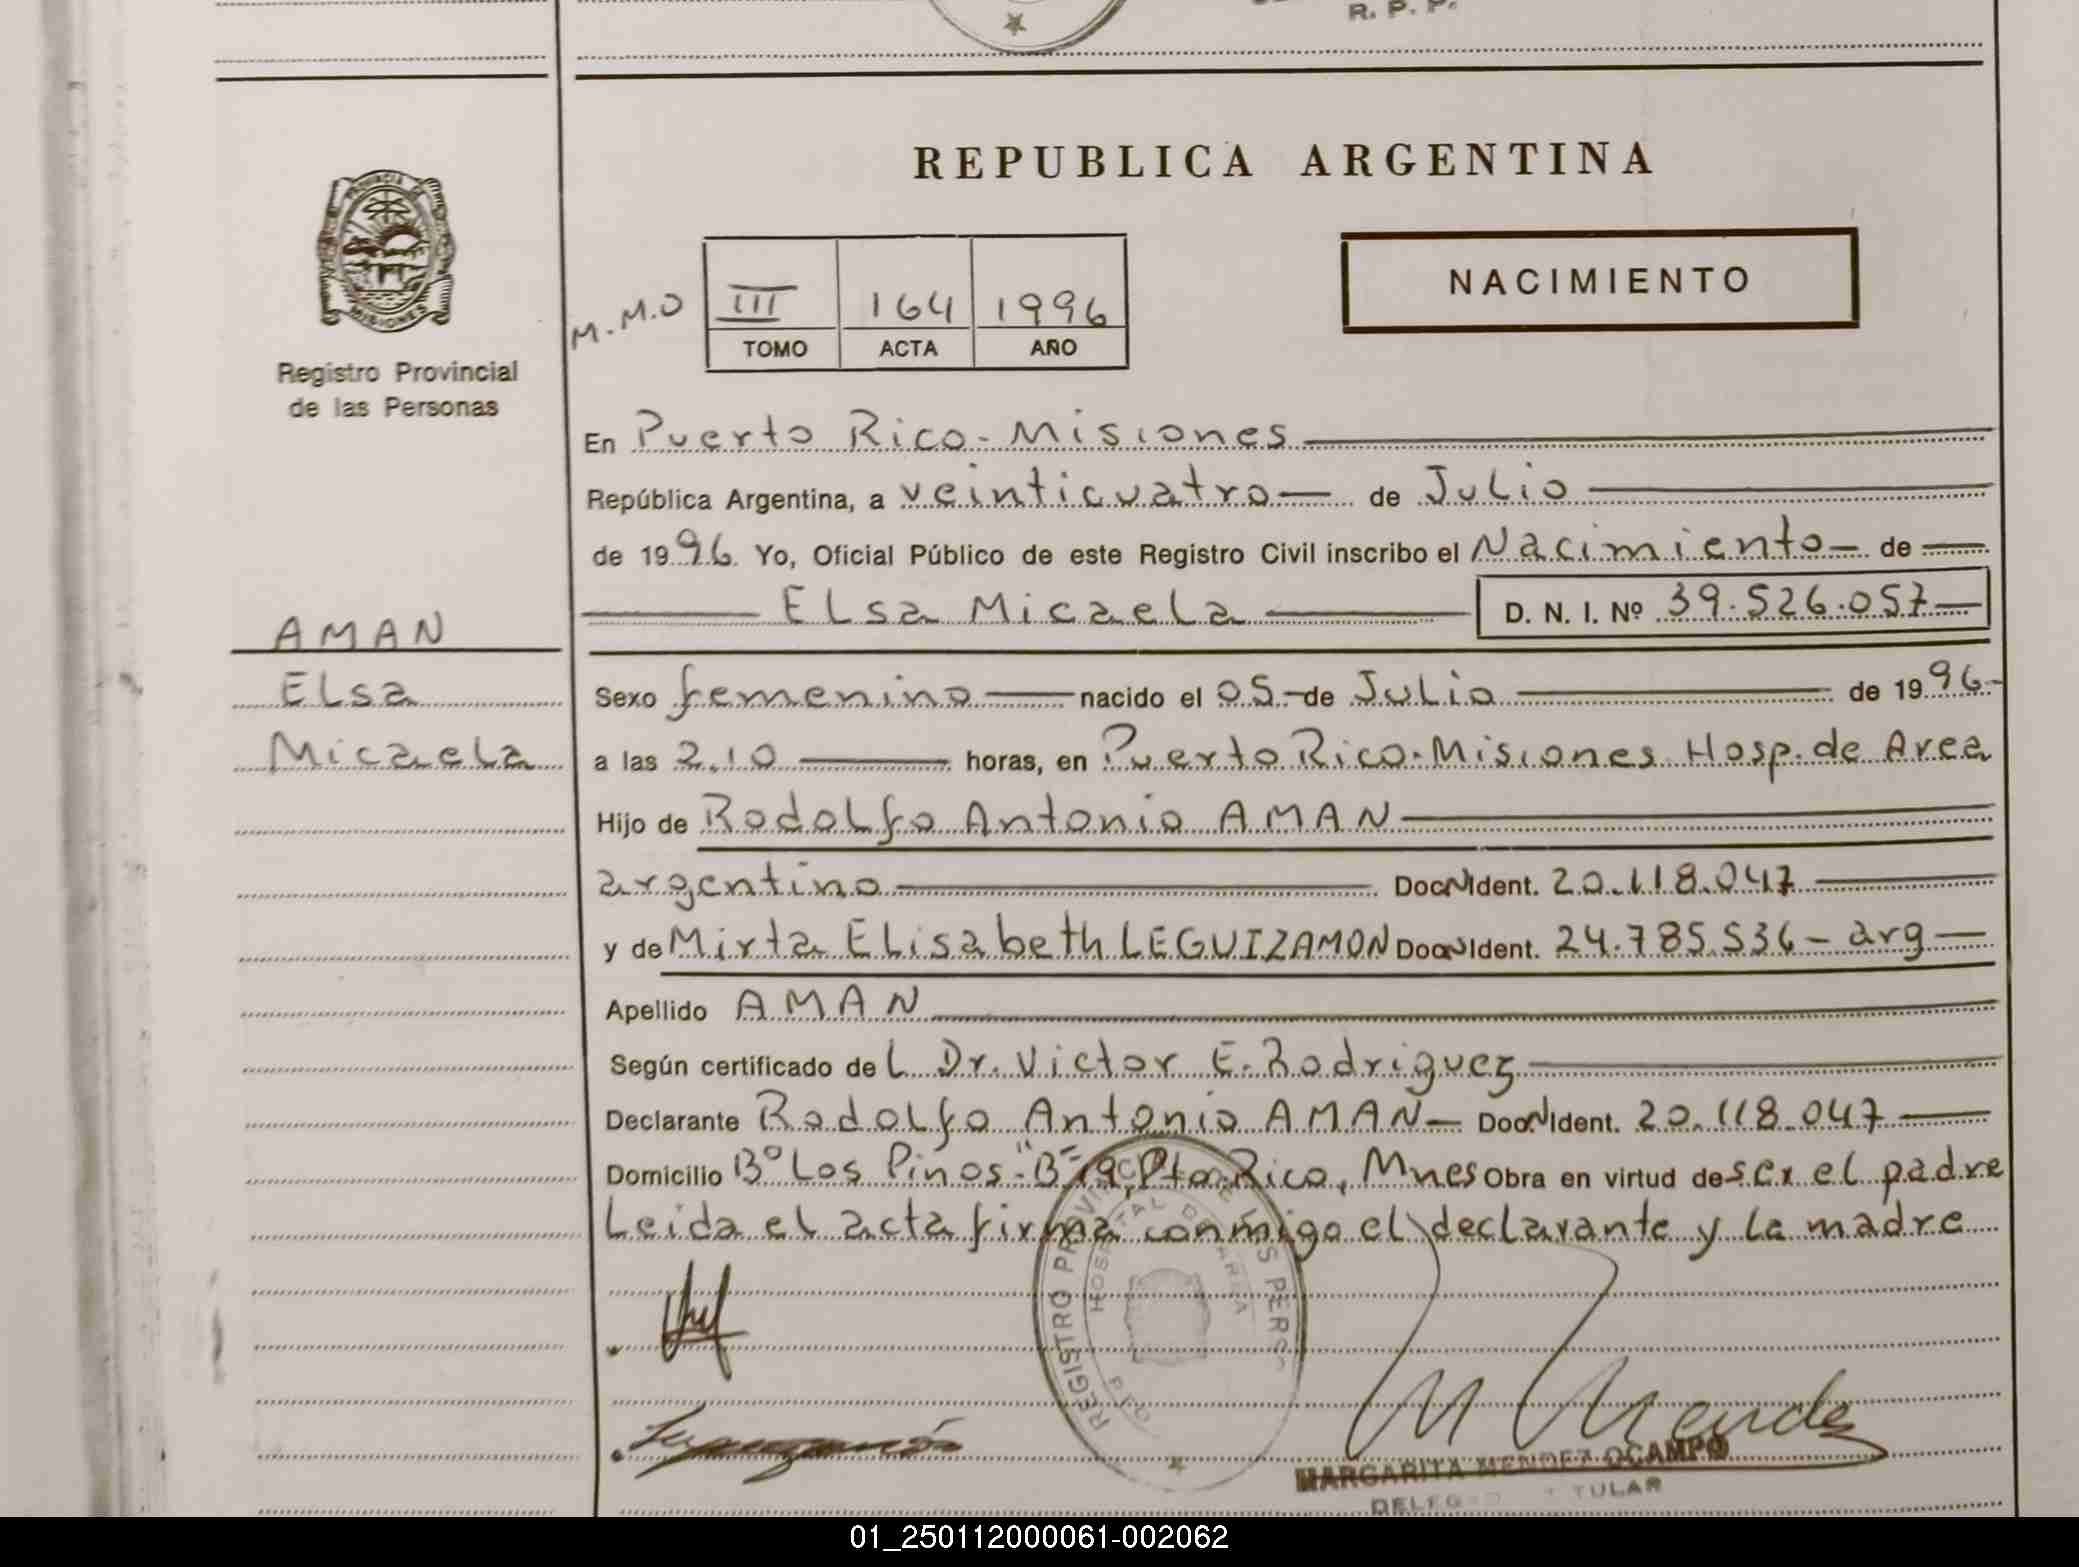 R. P. P.
REPUBLICA ARGENTINA
PROVINCIA DE
MISIONES
Registro Provincial
de las Personas
M.M.O
III 164 1996
TOMO ACTA AÑO
NACIMIENTO
En Puerto Rico - Misiones
República Argentina, a veinticuatro de Julio
de 1996 Yo, Oficial Público de este Registro Civil inscribo el Nacimiento de
Elsa Micaela D. N. I. Nº 39.526.057
AMAN
Elsa
Micaela
Sexo femenino nacido el 05 de Julio de 1996
a las 2.10 horas, en Puerto Rico - Misiones Hosp. de Area
Hijo de Rodolfo Antonio AMAN
argentino Doc. N Ident. 20.118.047
y de Mirta Elisabeth LEGUIZAMON Doc. N Ident. 24.785.536 - arg
Apellido AMAN
Según certificado del Dr. Victor E. Rodriguez
Declarante Rodolfo Antonio AMAN Doc. N Ident. 20.118.047
Domicilio Bº Los Pinos "B" 19, Pto. Rico, Mnes Obra en virtud de ser el padre
Leida el acta firma conmigo el declarante y la madre
REGISTRO PROVINCIAL DE LAS PERSO
HOSPITAL DE AREA
M Mendez
MARGARITA MENDEZ OCAMPO
TITULAR
01_250112000061-002062